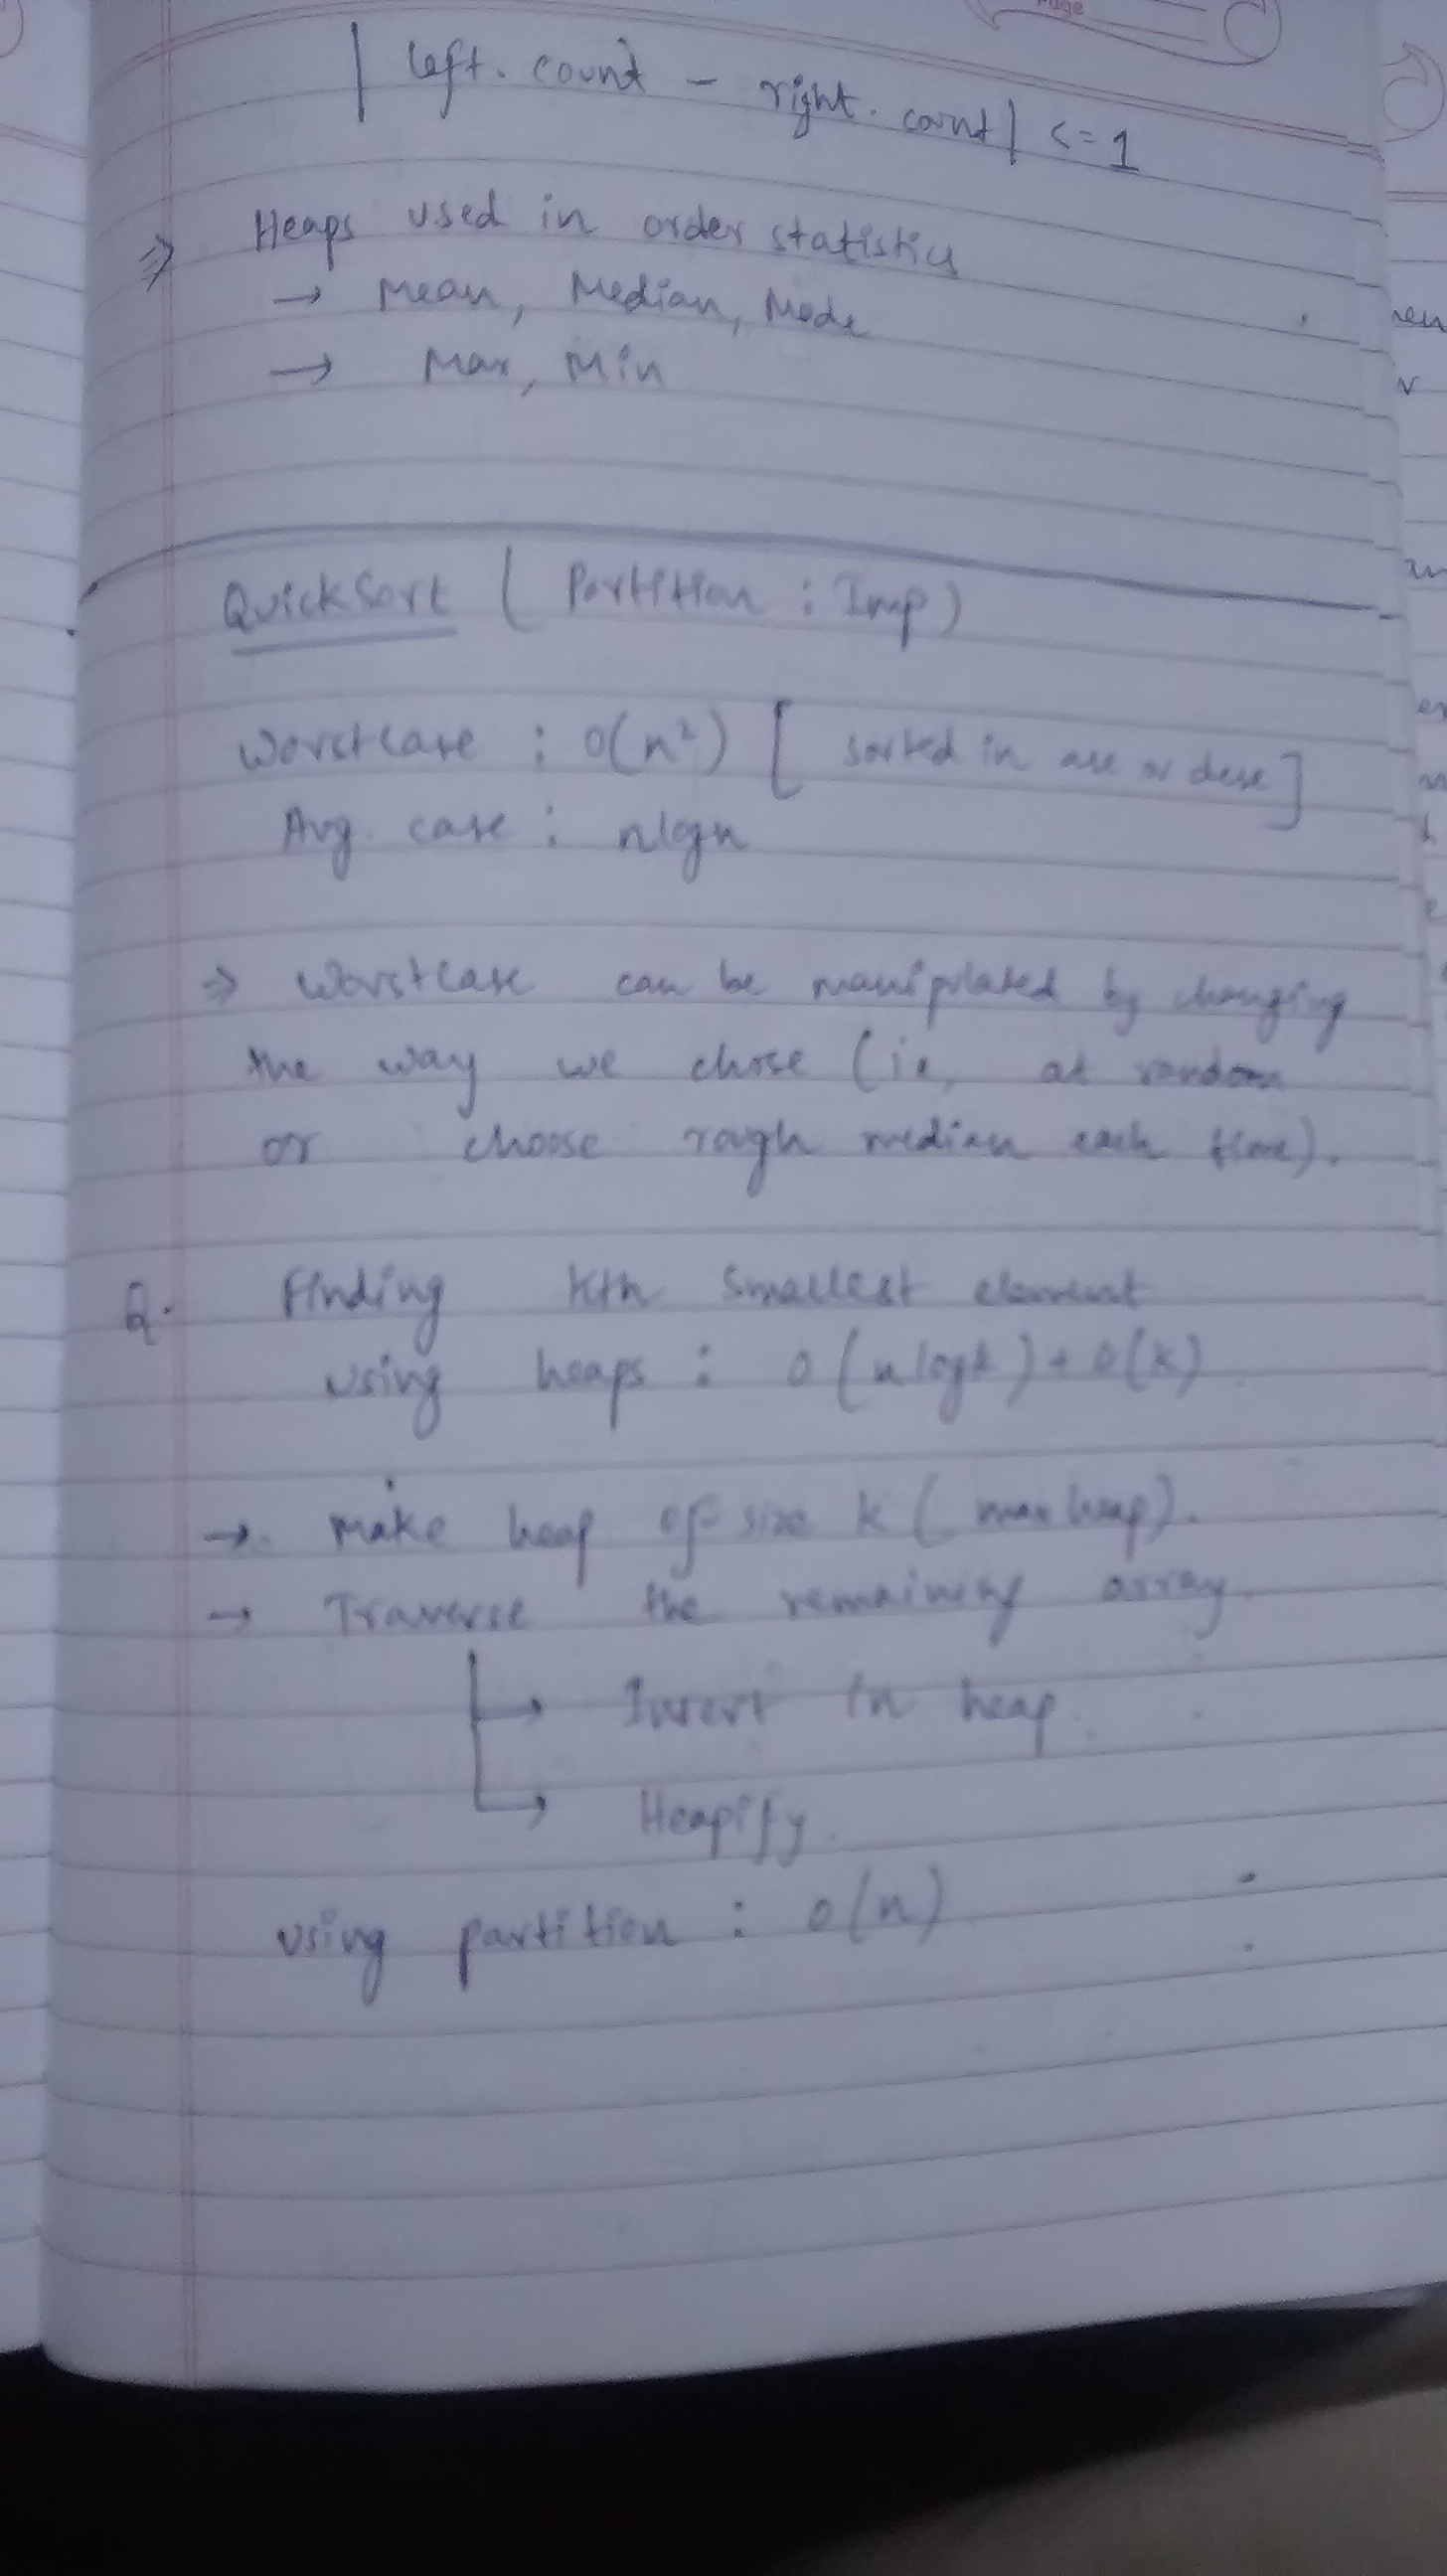 Page
| left. count - right. count | <= 1
⇒ Heaps used in order statistics
→ Mean, Median, Mode
→ Max, Min
QuickSort ( Partition : Imp )
Worstcase : O(n²) [ sorted in asc or desc ]
Avg. case : nlogn
⇒ Worstcase can be manipulated by changing
the way we chose (ie, at random
or choose rough median each time).
Q. Finding Kth Smallest element
using heaps : O(nlogk) + O(k)
→ Make heap of size k ( max heap ).
→ Traverse the remaining array.
→ Insert in heap.
→ Heapify.
using partition : O(n)